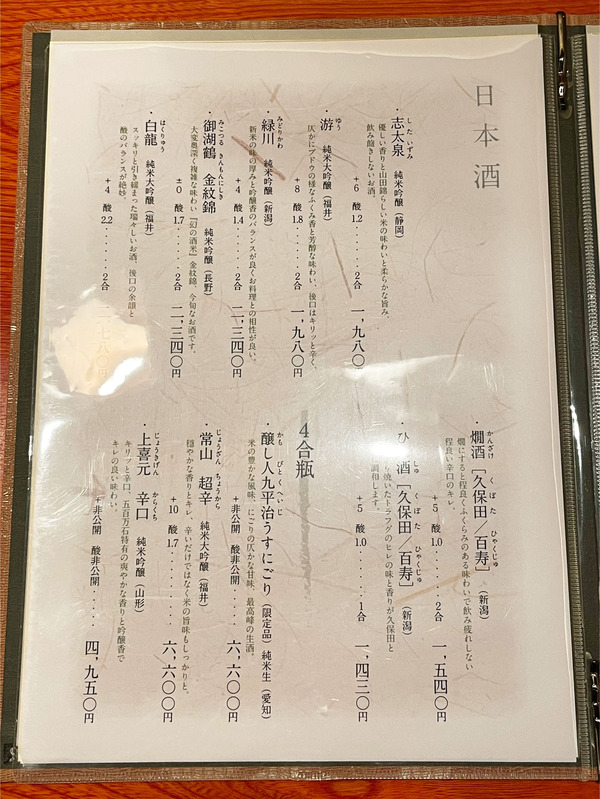 日本酒
・志太泉 純米吟醸（静岡）
したいずみ
優しい香りと山田錦らしい米の味わいと柔らかな旨み、
飲み飽きしないお酒。
+6 酸1.2・・・・・・2合 一,九八〇円
・游 純米大吟醸（福井）
ゆう
仄かにブドウの様なふくみ香と芳醇な味わい、後口はキリッと辛く。
+8 酸1.8・・・・・・2合 一,九八〇円
・緑川 純米吟醸（新潟）
みどりかわ
新米の味の厚みと吟醸香のバランスが良くお料理との相性が良い。
+4 酸1.4・・・・・・2合 二,三四〇円
・御湖鶴 金紋錦 純米吟醸（長野）
みこつる きんもんにしき
大変奥深く複雑な味わい『幻の酒米』金紋錦、今旬なお酒です。
±0 酸1.7・・・・・・2合 二,三四〇円
・白龍 純米大吟醸（福井）
はくりゅう
スッキリと引き締まった瑞々しいお酒、後口の余韻と
酸のバランスが絶妙
+4 酸2.2・・・・・・2合 八〇円
・燗酒［久保田／百寿］（新潟）
かんざけ くぼた ひゃくじゅ
燗にすると程良くふくらみのある味わいで飲み疲れしない
程良い辛口のキレ。
+5 酸1.0・・・・・・2合 一,五四〇円
・ひ 酒［久保田／百寿］（新潟）
しゅ くぼた ひゃくじゅ
り焼いたトラフグのヒレの味と香りが久保田と
調和します。
+5 酸1.0・・・・・・1合 一,四三〇円
4合瓶
・醸し人九平治うすにごり（限定品）純米生（愛知）
かも びとくへいじ
米の豊かな風味、にごりの仄かな甘味、最高峰の生酒。
+非公開 酸非公開・・・・・ 六,六〇〇円
・常山 超辛 純米大吟醸（福井）
じょうざん ちょうから
穏やかな香りとキレ、辛いだけではなく米の旨味もしっかりと。
+10 酸1.7・・・・・・・・・ 六,六〇〇円
・上喜元 辛口 純米吟醸（山形）
じょうきげん からくち
キリッと辛口、五百万石特有の爽やかな香りと吟醸香で
キレの良い味わい。
+非公開 酸非公開・・・・・ 四,九五〇円